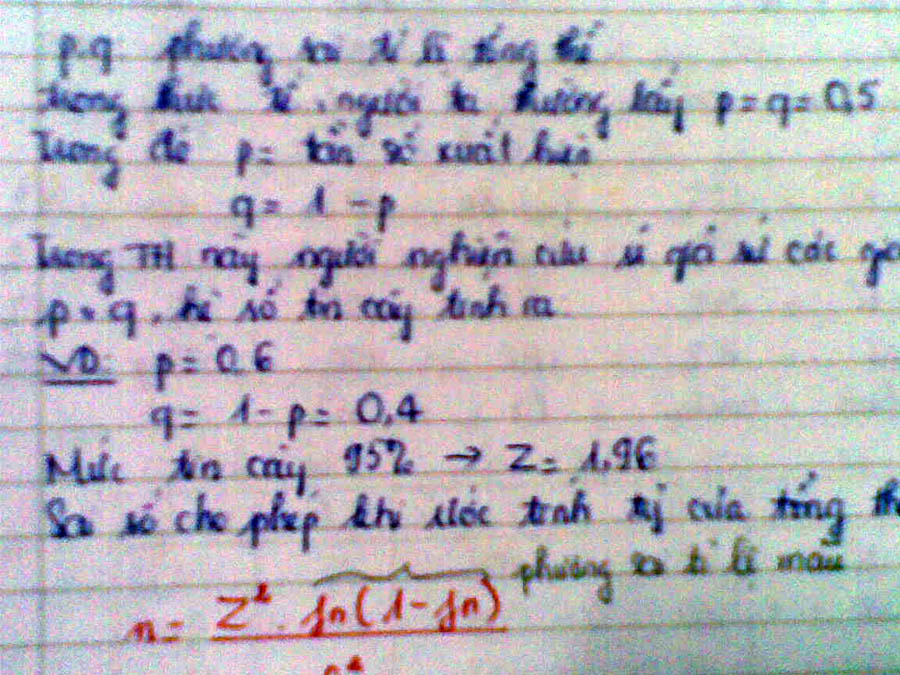 p.q phương sai tỉ lệ tổng thể
trong thực tế, người ta thường lấy p=q=0,5
Trong đó p= tần số xuất hiện
q= 1 -p
Trong TH này người nghiên cứu sẽ giả sử các
p.q, hệ số tin cậy tính ra
VD: p= 0.6
q= 1-p= 0,4
Mức tin cậy 95% → Z= 1,96
Sai số cho phép khi ước tính tỷ của tổng
phương sai tỉ lệ mẫu
n= Z². fn(1-fn)